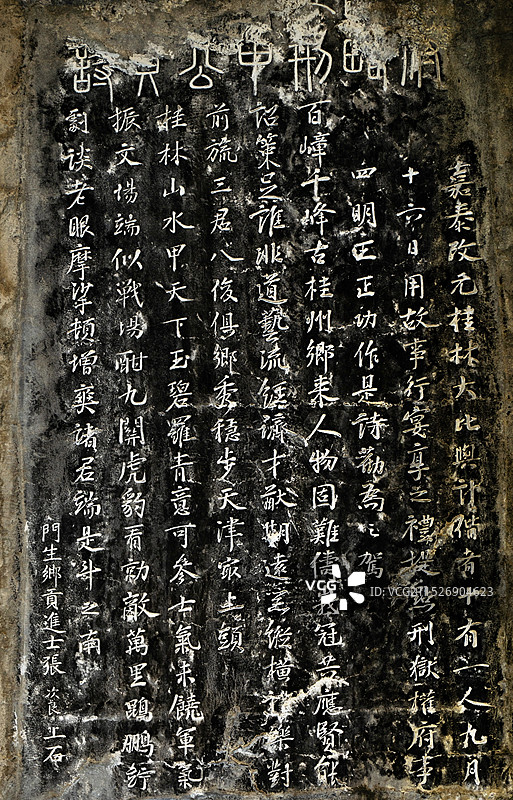 刑中公詩
嘉泰改元桂林大比與計偕者十有一人九月
十六日用故事行宴享之禮提點刑獄權府事
四明王正功作是詩勸為之駕
百嶂千峰古桂州鄉來人物固難儔峩冠共應賢能
詔策足誰非道藝流經濟才猷期遠至縱橫禮樂對
前旒三君八俊俱鄉秀穩步天津最上頭
桂林山水甲天下玉碧羅青意可參士氣未饒軍氣
振文場端似戰場酣九關虎豹看勍敵萬里鵾鵬佇
劇談老眼摩挲頓增爽諸君端是斗之南
門生鄉貢進士張次良上石
VCG
ID: VCG211526904623